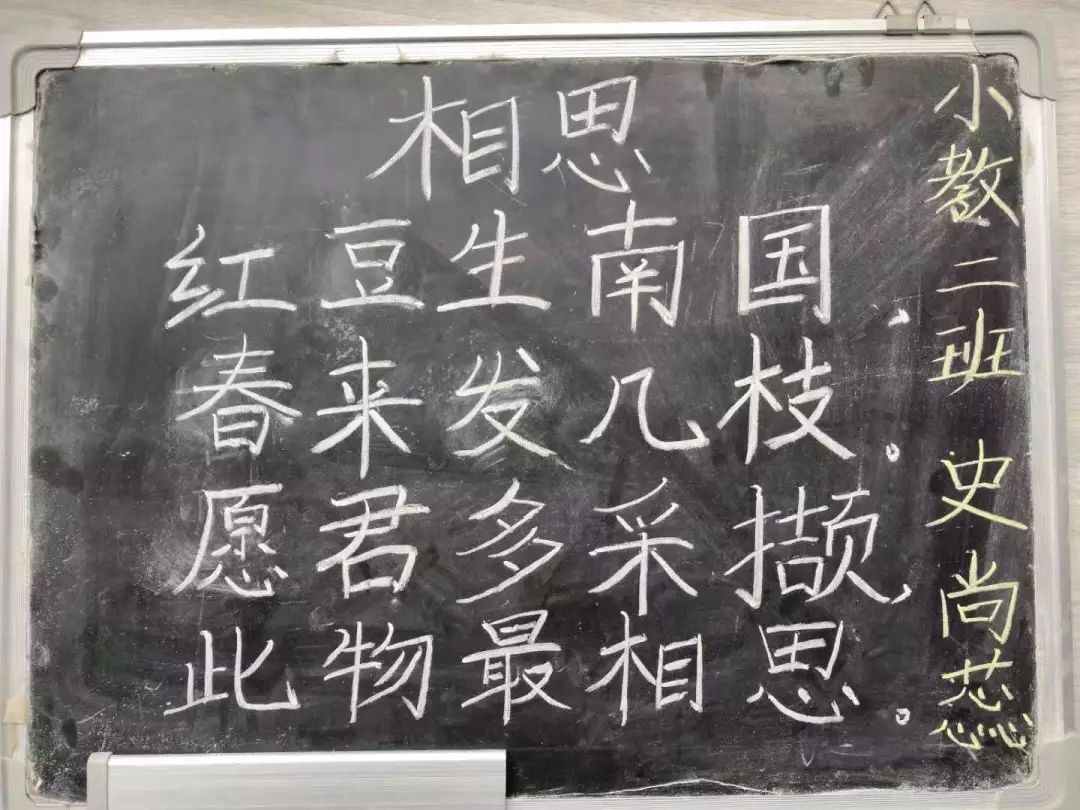 相思
红豆生南国,
春来发几枝。
愿君多采撷,
此物最相思。
小教二班 史尚蕊